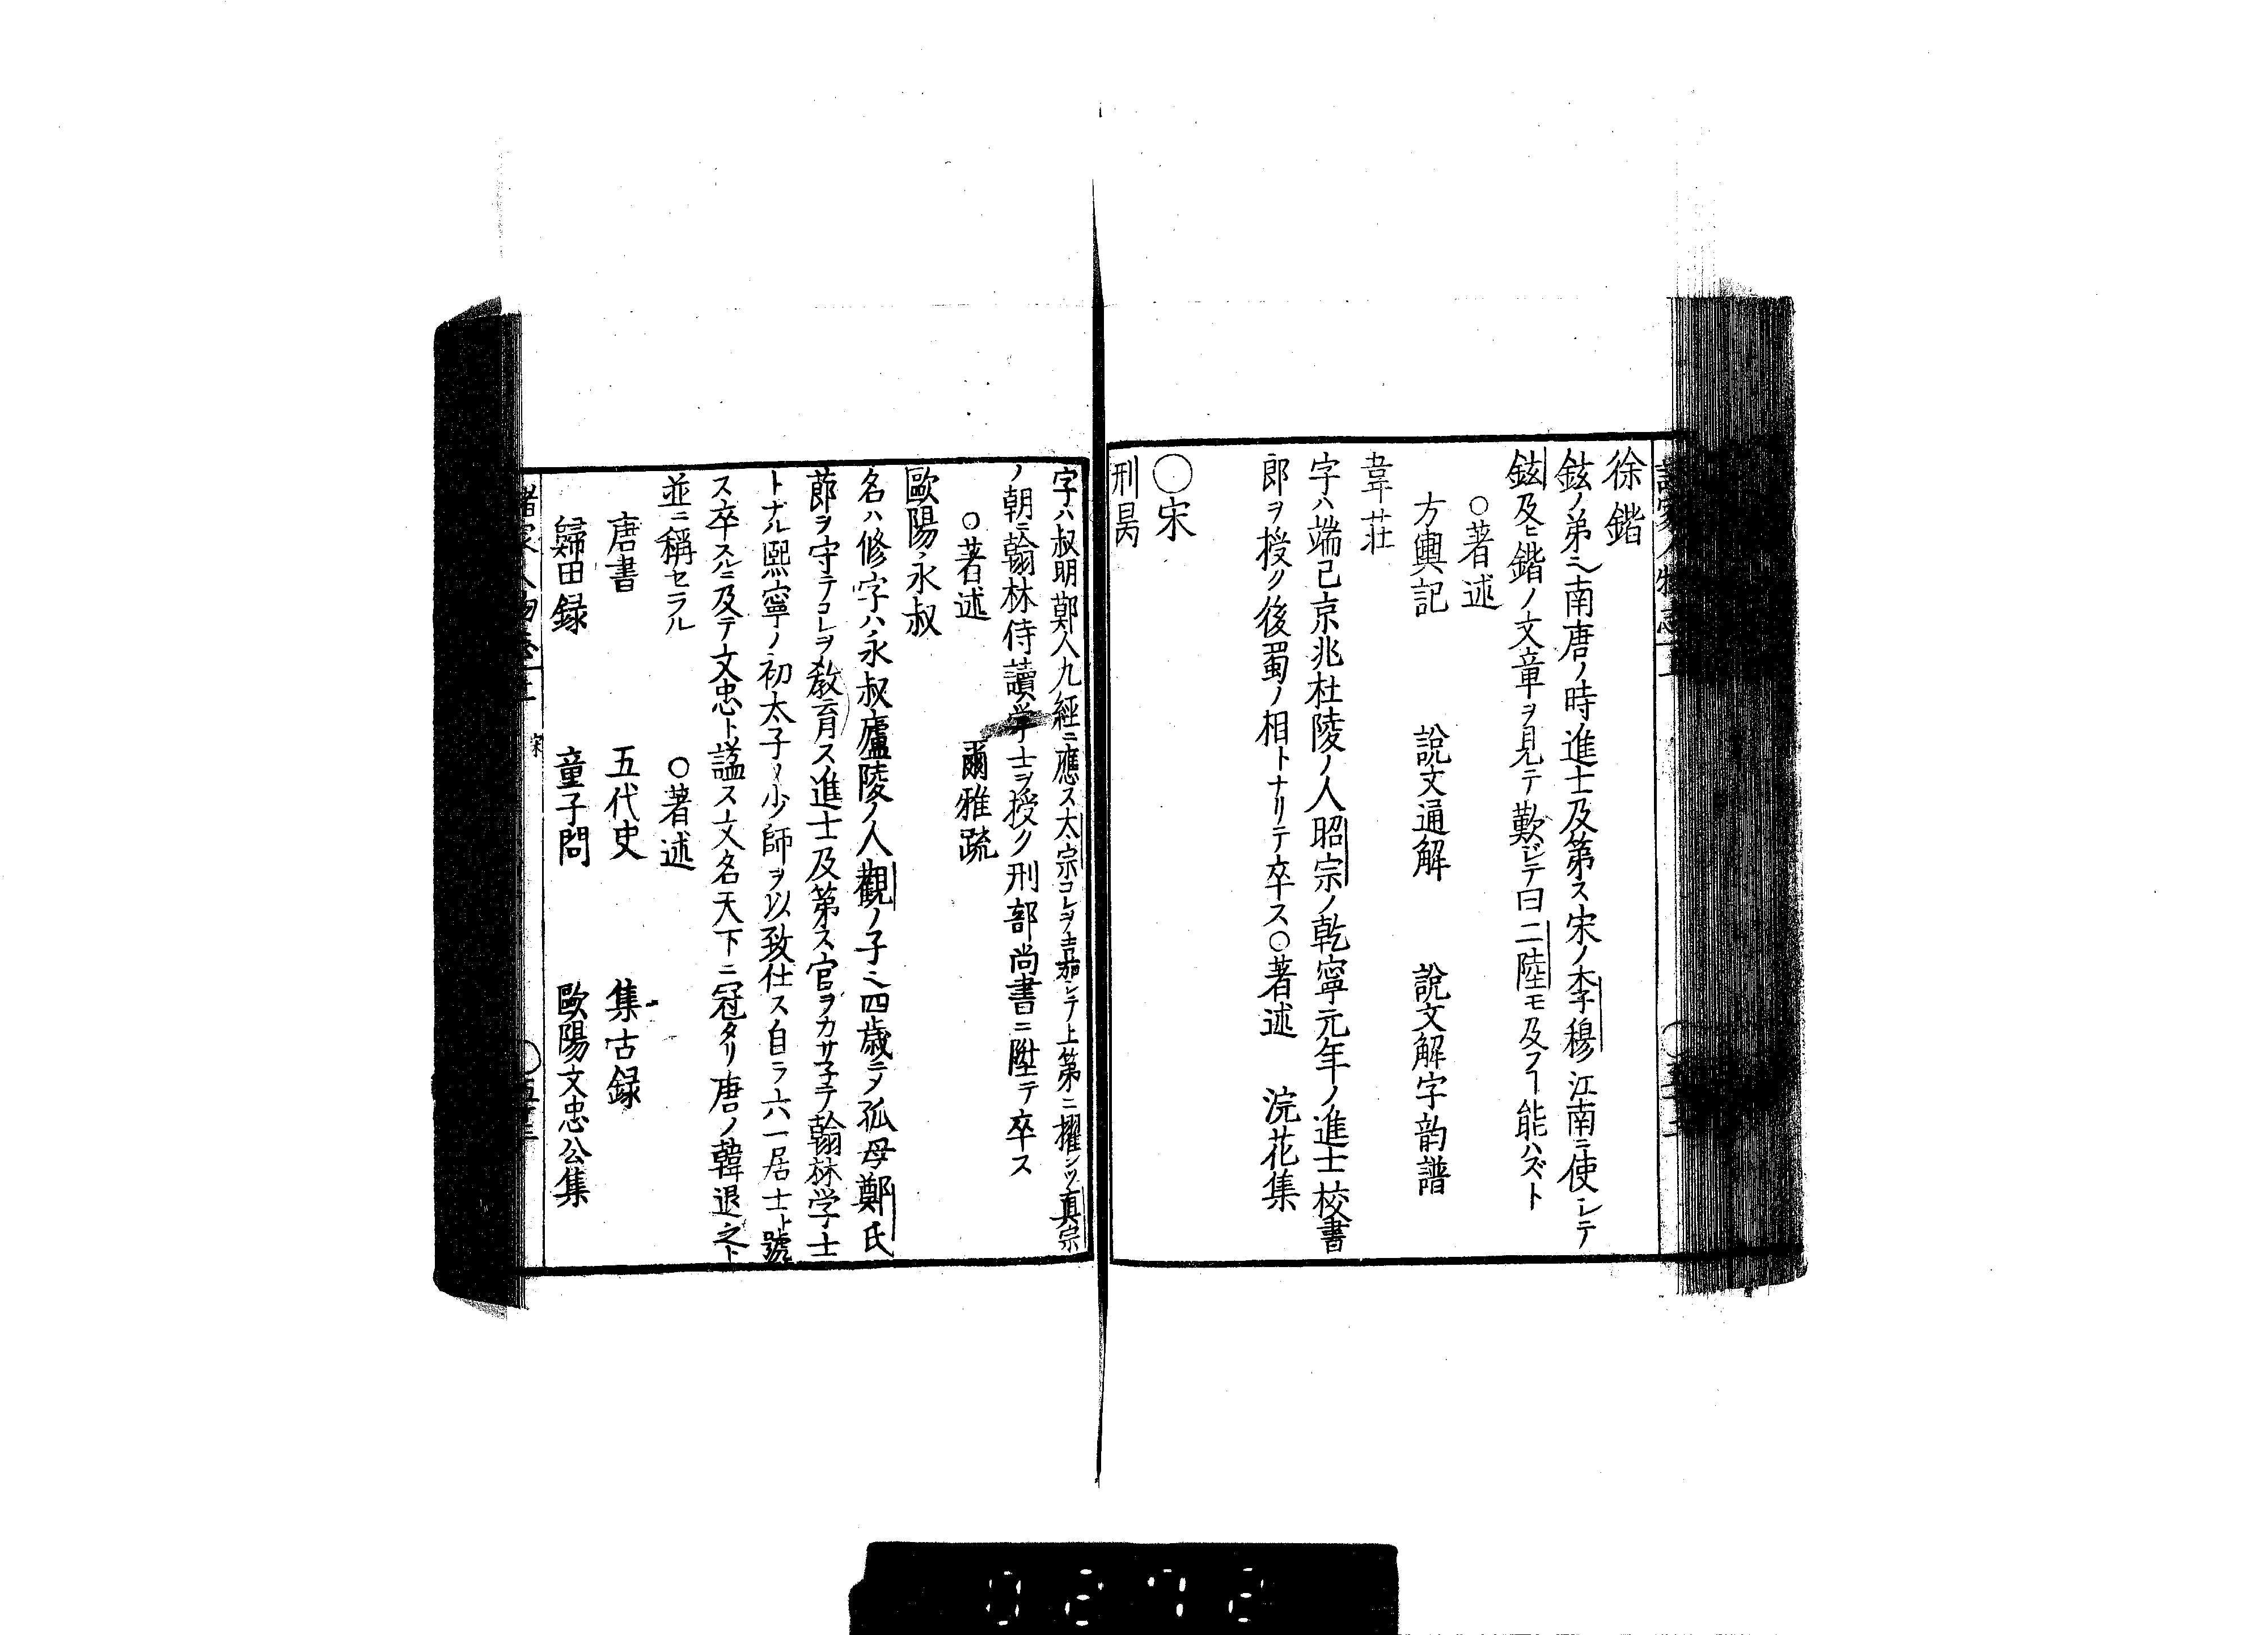 徐鍇
鉉ノ弟ニ乄南唐ノ時進士及第ス宋ノ李穆江南ニ使シテ
鉉及ヒ鍇ノ文章ヲ見テ歎ジテ曰二陸モ及フヿ能ハズト
○著述
方輿記　說文通解　說文解字韵譜
韋莊
字ハ端己京兆杜陵ノ人昭宗ノ乾寧元年ノ進士校書
郎ヲ授ク後蜀ノ相トナリテ卒ス○著述　浣花集
○宋
刑昺
字ハ叔明鄭人九經ニ應ス太宗コレヲ嘉シテ上第ニ擢ンツ真宗
ノ朝ニ翰林侍讀学士ヲ授ク刑部尚書ニ陞テ卒ス
○著述　爾雅疏
歐陽永叔
名ハ修字ハ永叔廬陵ノ人觀ノ子ニ四歳ニ乄孤母鄭氏
節ヲ守テコレヲ教育ス進士及第ス官ヲカサ子テ翰林学士
トナル熙寧ノ初太子ノ少師ヲ以致仕ス自ラ六一居士ト號
ス卒スルニ及テ文忠ト謚ス文名天下ニ冠タリ唐ノ韓退之ト
並ニ稱セラル　○著述
唐書　五代史　集古録
歸田録　童子問　歐陽文忠公集
宋
0272